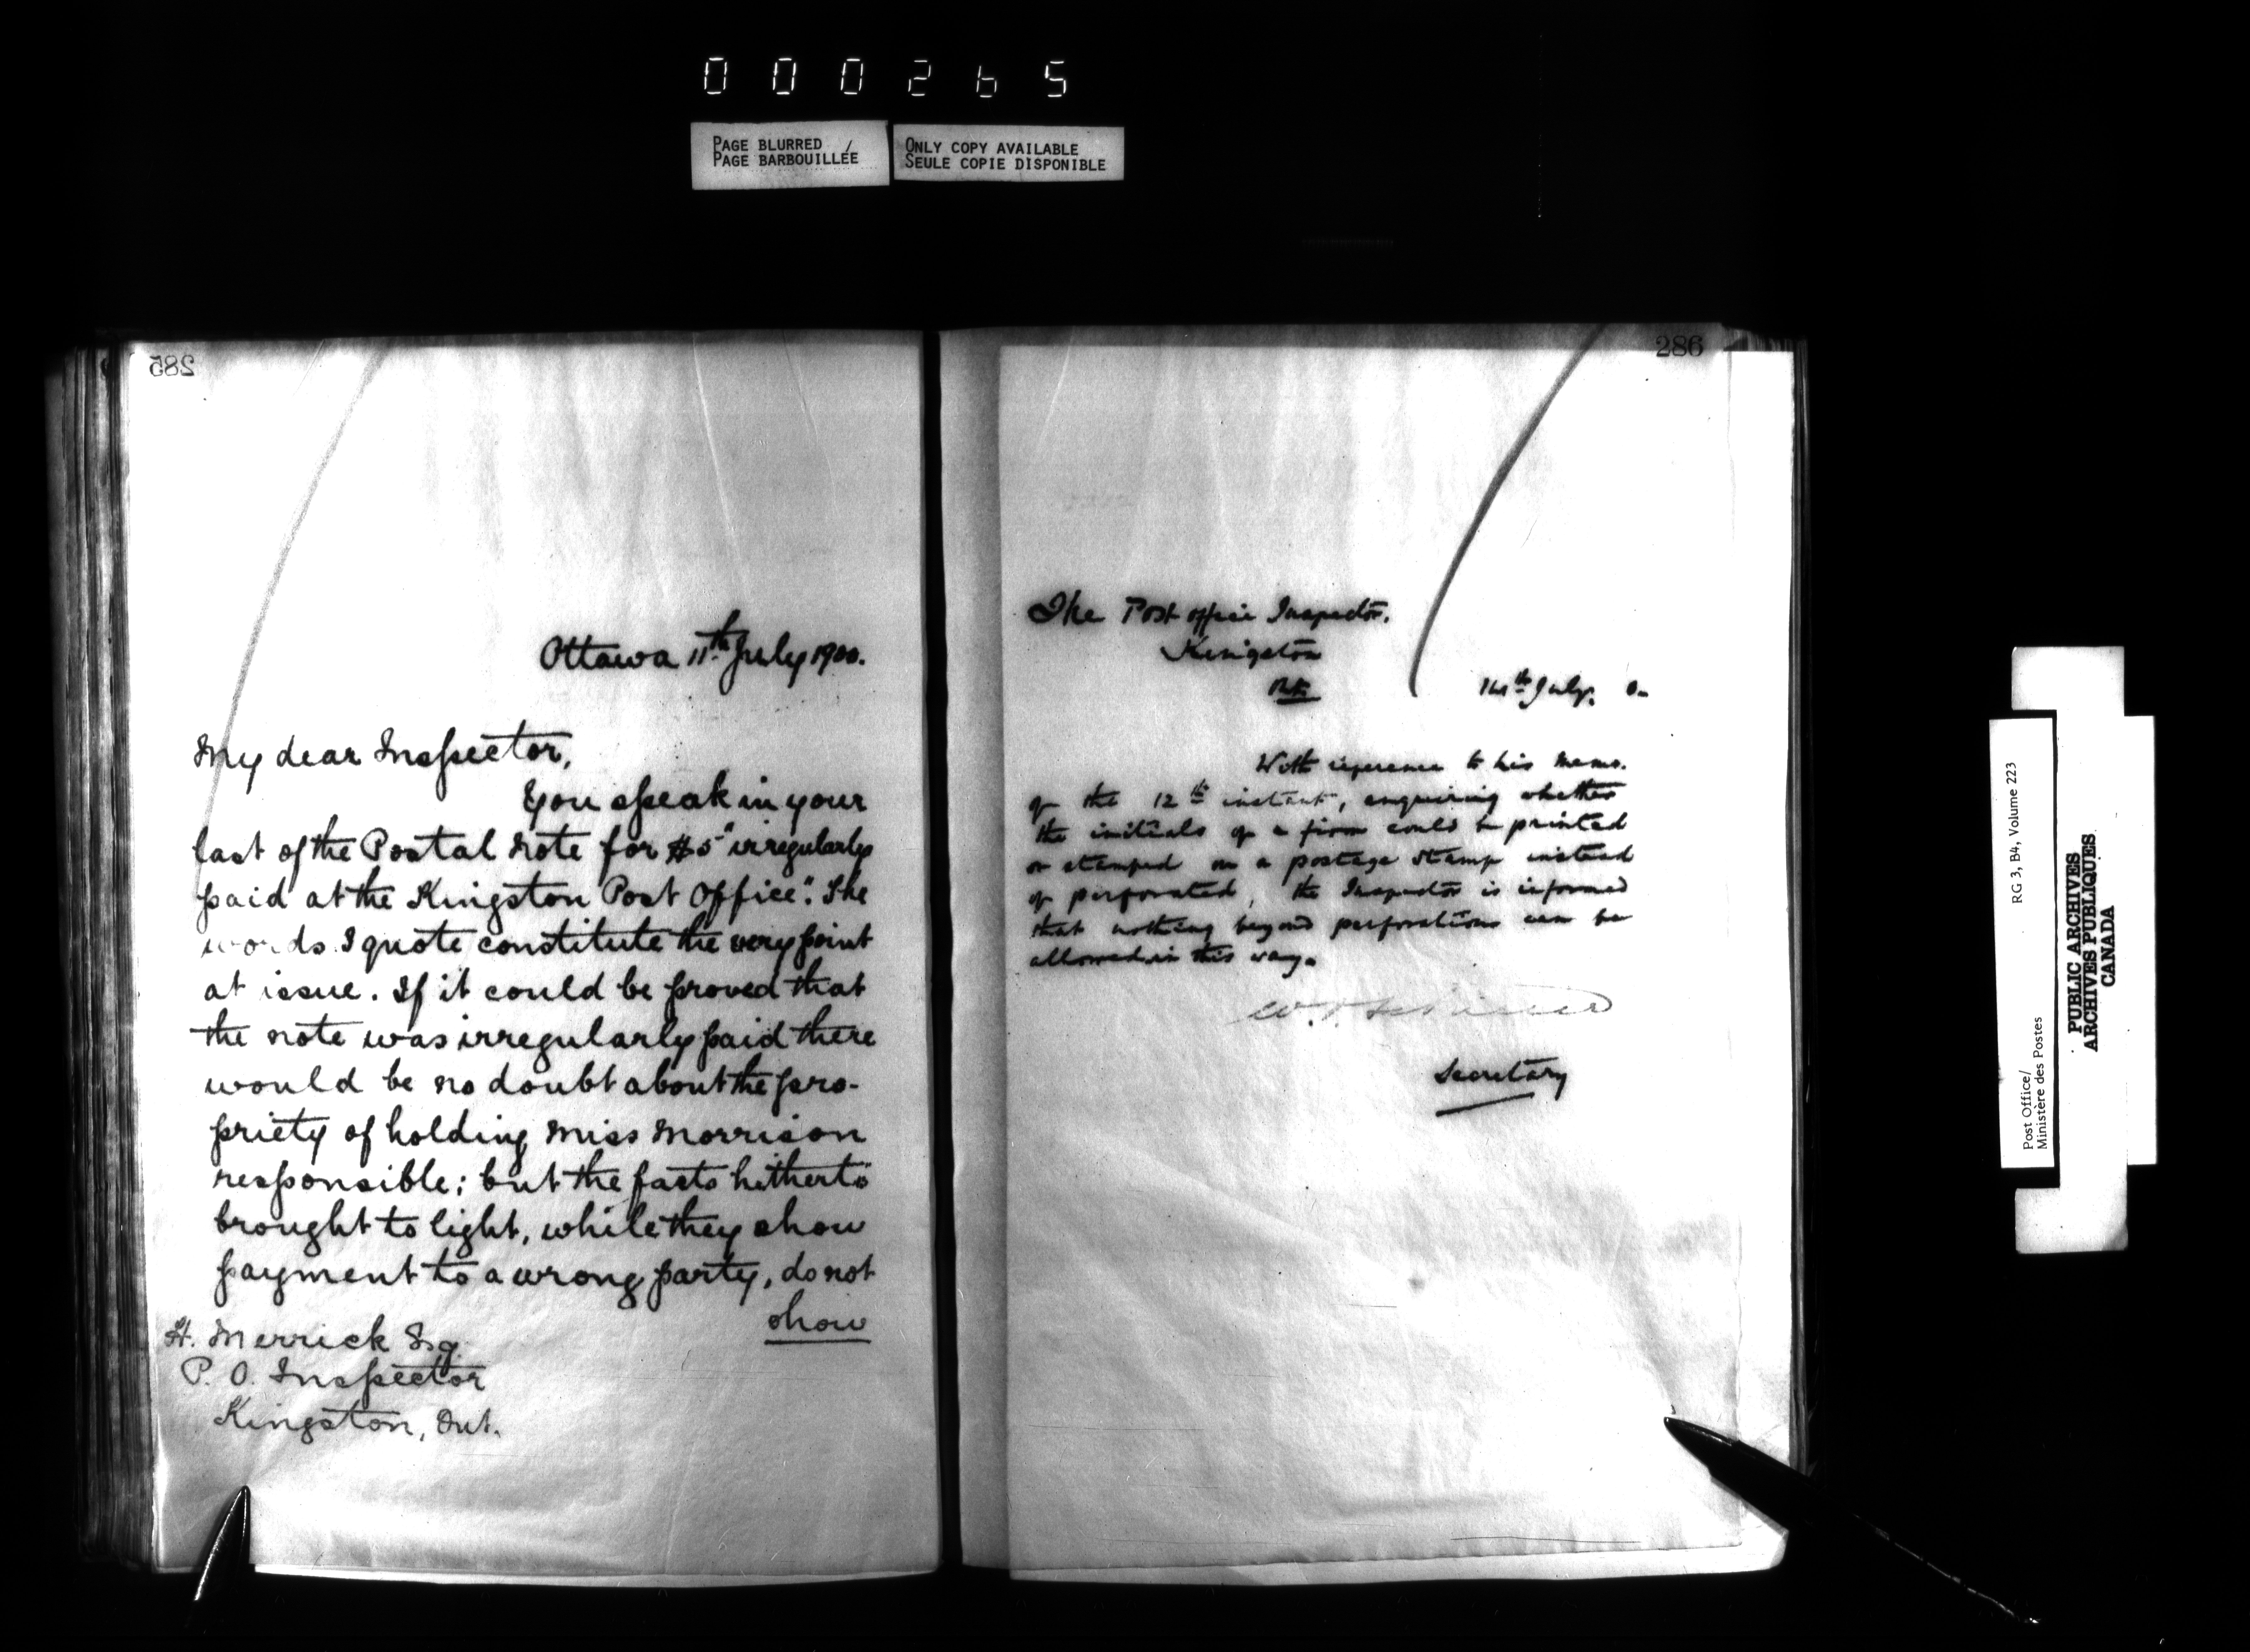 000265
PAGE BLURRED / ONLY COPY AVAILABLE
PAGE BARBOUILLÉE SEULE COPIE DISPONIBLE
285
Ottawa 11th July 1900.
My dear Inspector,
You speak in your
last of the Postal Note for $5 "irregularly
paid at the Kingston Post Office". The
words I quote constitute the very point
at issue. If it could be proved that
the note was irregularly paid there
would be no doubt about the pro-
priety of holding Miss Morrison
responsible; but the facts hitherto
brought to light, while they show
payment to a wrong party, do not
show
H. Merrick Esq.
P. O. Inspector
Kingston, Ont.
286
The Post office Inspector.
Kingston
Ont.
14th July.
With reference to his memo.
of the 12th instant, enquiring whether
the initials of a firm could be printed
or stamped on a postage stamp instead
of perforated, the Inspector is informed
that nothing beyond perforations can be
allowed in this way.
Secretary
Post Office/
Ministère des Postes
RG 3, B4, Volume 223
PUBLIC ARCHIVES
ARCHIVES PUBLIQUES
CANADA